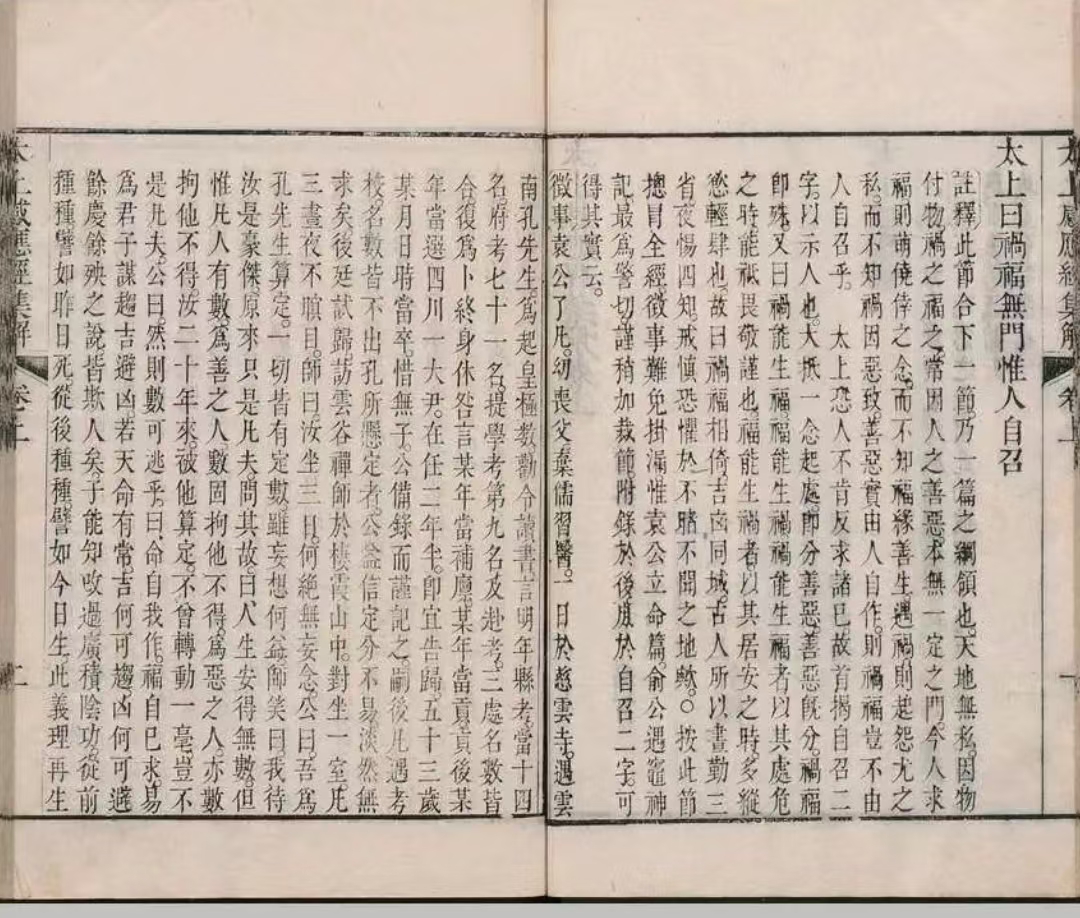 太上曰禍福無門惟人自召
註釋此節合下一節乃一篇之綱領也天地無私因物
付物禍之福之常因人之善惡本無一定之門今人求
福則萌僥倖之念而不知福緣善生遇禍則起怨尤之
私而不知禍因惡致善惡實由人自作則禍福豈不由
人自召乎 太上恐人不肯反求諸已故首揭自召二
字以示人也大抵一念起處即分善惡善惡既分禍福
即殊又曰禍能生福福能生禍禍能生福者以其處危
之時能祇畏敬謹也福能生禍者以其居安之時多縱
慾輕肆也故曰禍福相倚吉凶同域古人所以晝勤三
省夜惕四知戒慎恐懼於不睹不聞之地歟○按此節
摠冒全經徵事難免掛漏惟袁公立命篇俞公遇竈神
記最爲警切謹稍加裁節附錄於後庶於自召二字可
得其實云
徵事袁公了凡幼喪父棄儒習醫一日於慈雲寺遇雲
南孔先生爲起皇極數勸令讀書言明年縣考當十四
名府考七十一名提學考第九名及赴考三處名數皆
合復爲卜終身休咎言某年當補廩某年當貢貢後某
年當選四川一大尹在任二年半即宜告歸五十三歲
某月日時當卒惜無子公備錄而謹記之嗣後凡遇考
校名數皆不出孔所懸定者公益信定分不易淡然無
求矣後廷試歸訪雲谷禪師於棲霞山中對坐一室凡
三晝夜不瞋目師曰汝坐三日何絶無妄念公曰吾爲
孔先生算定一切皆有定數雖妄想何益師笑曰我待
汝是豪傑原來只是凡夫問其故曰人生安得無數但
惟凡人有數爲善之人數固拘他不得爲惡之人亦數
拘他不得汝二十年來被他算定不曾轉動一毫豈不
是凡夫公曰然則數可逃乎曰命自我作福自已求易
爲君子謀趨吉避凶若天命有常吉何可趨凶何可避
餘慶餘殃之說皆欺人矣子能知改過廣積陰功從前
種種譬如昨日死從後種種譬如今日生此義理再生
太上感應經集解 卷之上 二